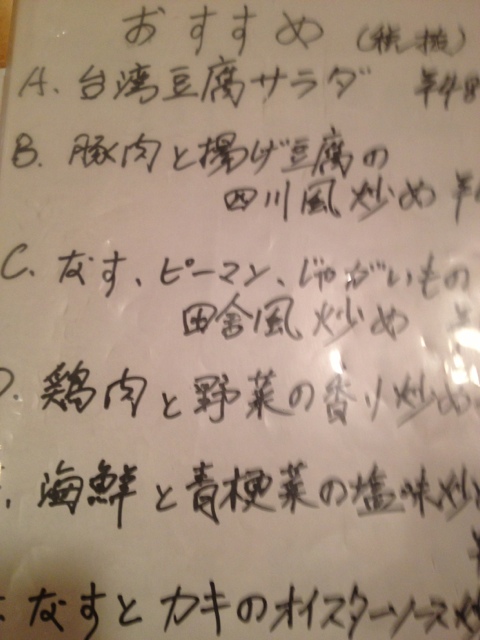 おすすめ (税抜)
A. 台湾豆腐サラダ ¥48
B. 豚肉と揚げ豆腐の
四川風炒め ¥
C. なす、ピーマン、じゃがいもの
田舎風炒め
鶏肉と野菜の香り炒め
海鮮と青梗菜の塩味炒
なすとカキのオイスターソース炒